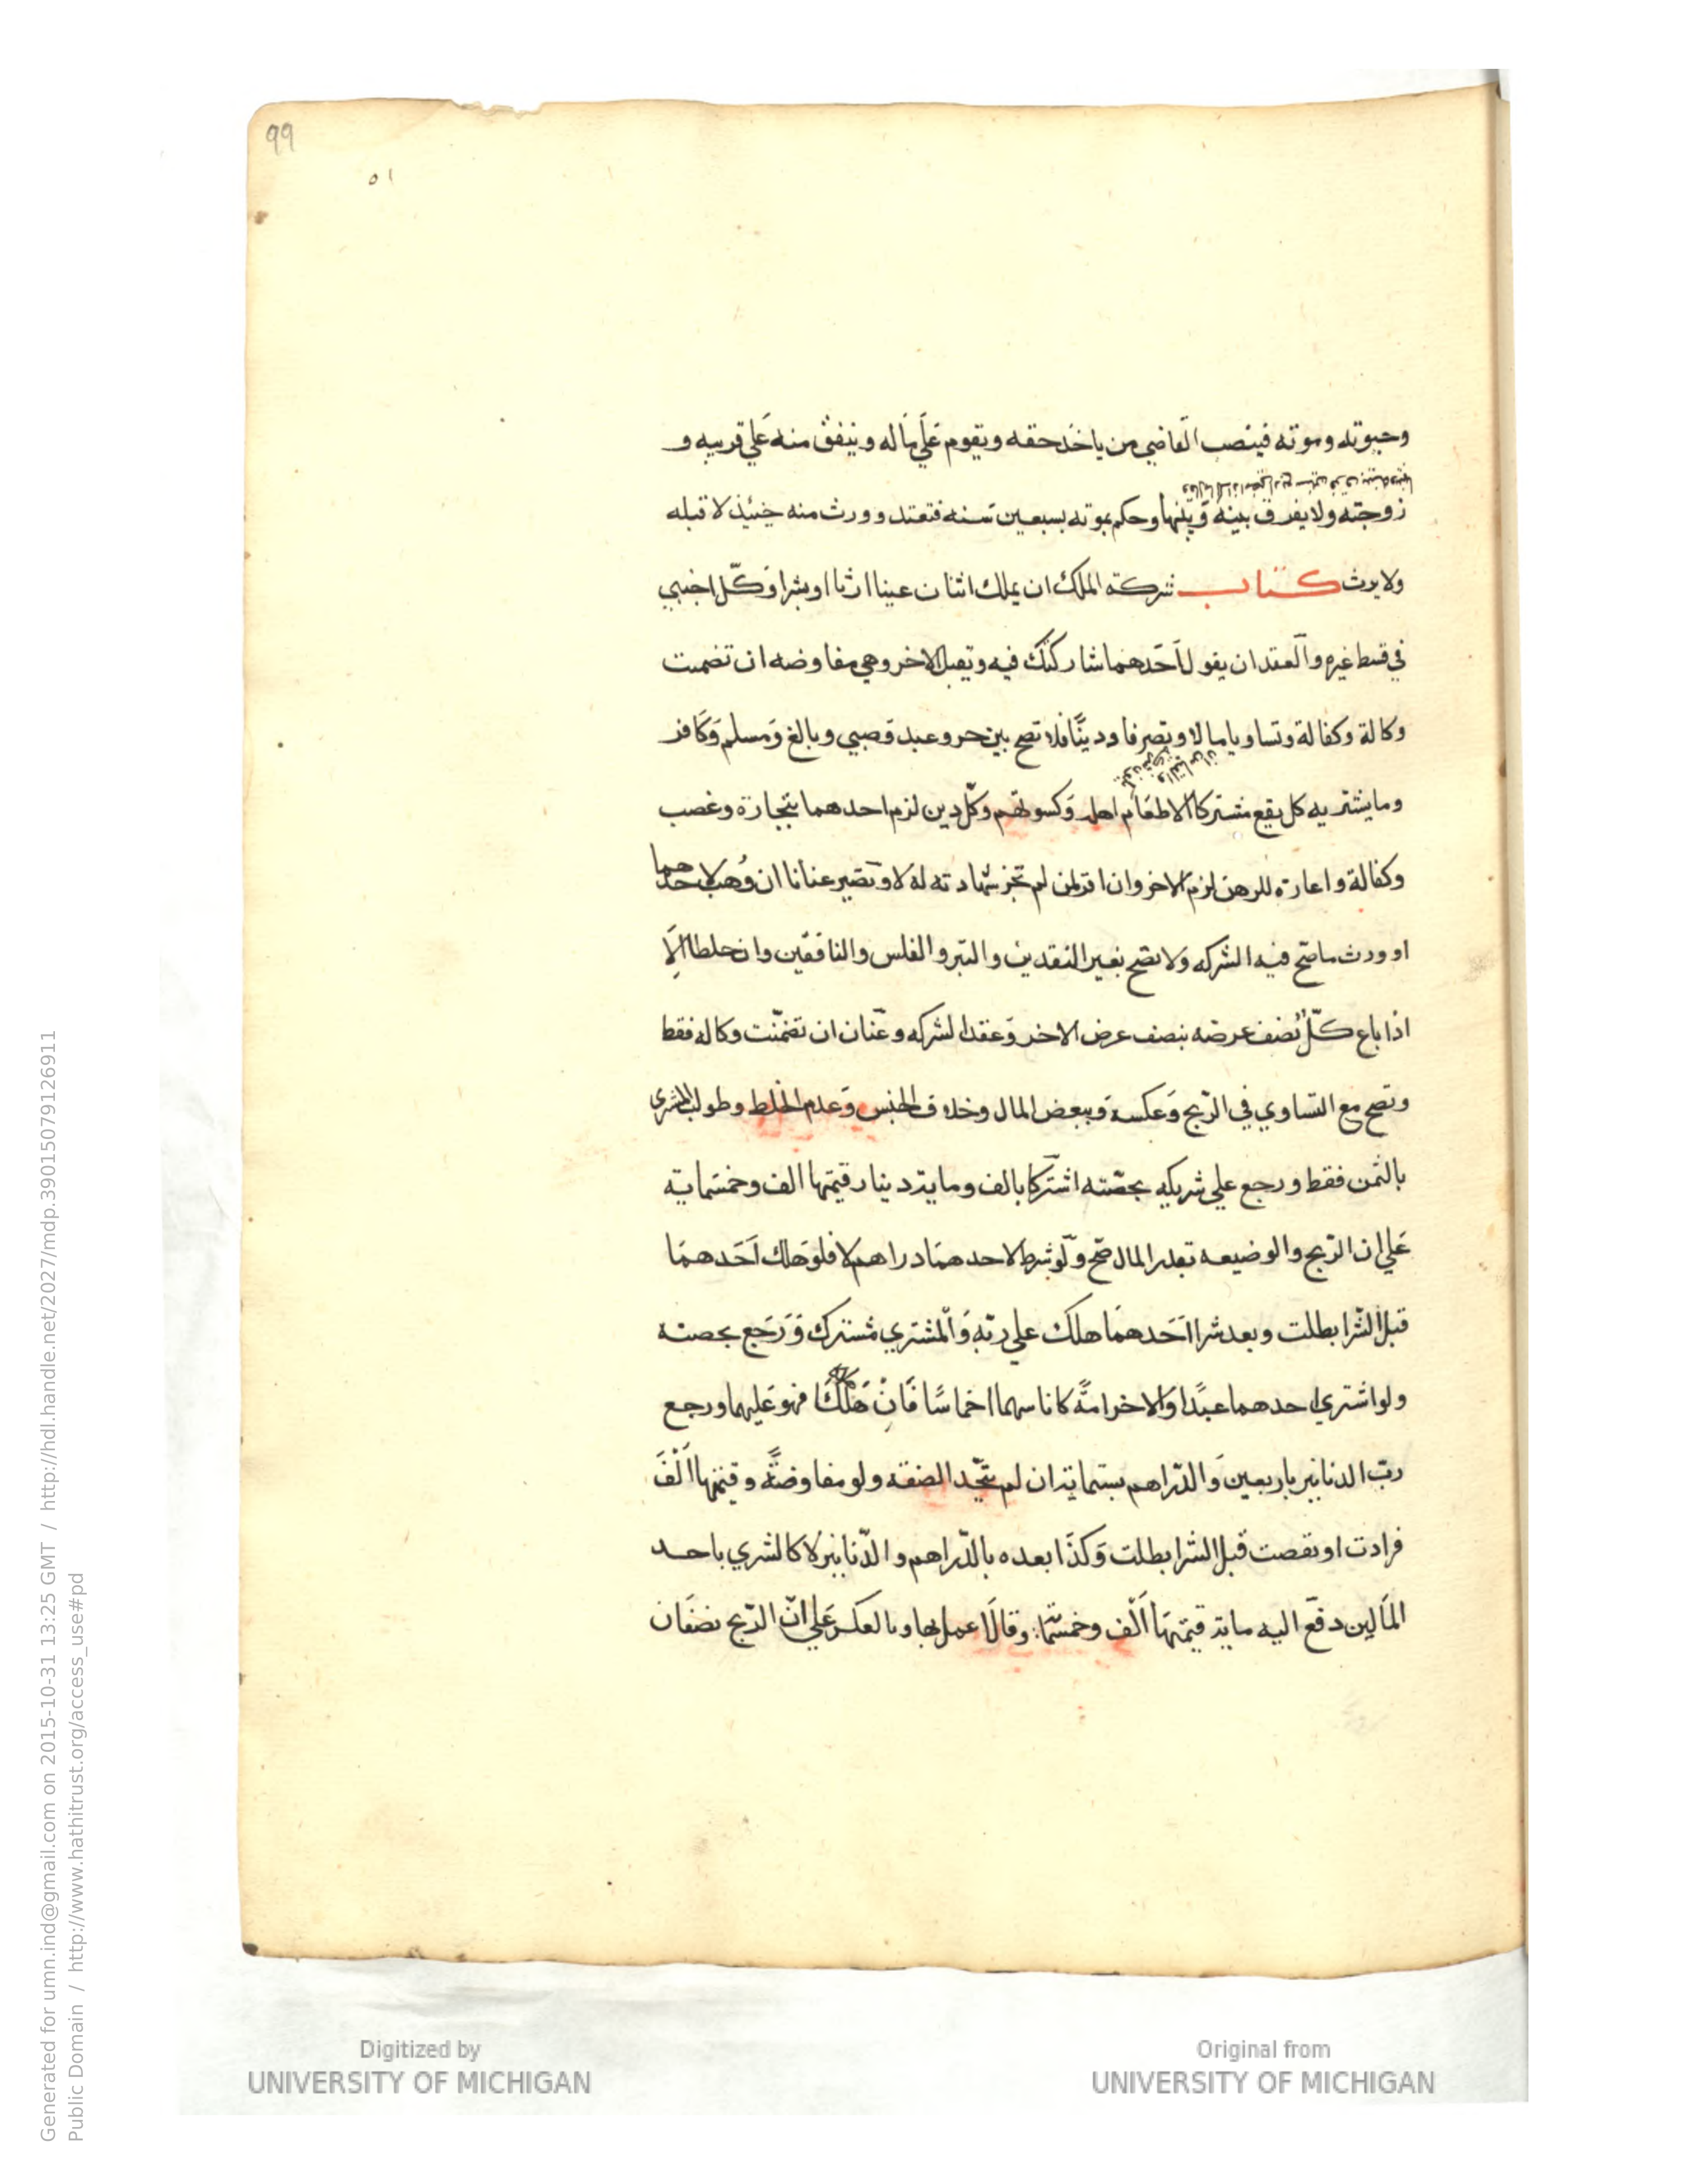 99
٥١
وحيوته وموته فينصب القاضي من ياخذ حقه ويقوم علي ماله وينفق منه علي قريبه و
زوجته ولا يفرق بينه وبينها وحكم بموته بسبعين سنه فتعتد وورث منه حينئذ لا قبله
ولا يرث كتاب شركة الملك ان يملك اثنان عينا ارثا او شرا وكل اجنبي
في قسط غيره والعقد ان يقول احدهما شاركتك فيه ويقبل الاخر وهي مفاوضه ان تضمنت
وكالة وكفالة وتساويا مالا وتصرفا ودينا فلا تصح بين حر وعبد وصبي وبالغ ومسلم وكافر
وما يشتريه كل يقع مشتركا الا طعام اهله وكسوتهم وكل دين لزم احدهما بتجارة وغصب
وكفالة واعارة للرهن لزم الاخر وان اقر لمن لم تجز شهادته له لا وتصير عنانا ان وهب لاحدهما
او ورث ما تصح فيه الشركه ولا تصح بغير النقدين والتبر والفلس والنافقين وان خلطا الا
اذا باع كل نصف عرضه بنصف عرض الاخر وعقدا لشركه وعنان ان تضمنت وكاله فقط
وتصح مع التساوي في الربح وعكسه وببعض المال وخلاف الجنس وعدم الخلط وطولب المشتري
بالثمن فقط ورجع علي شريكه بحصته اشتركا بالف وماية دينار قيمتها الف وخمسماية
علي ان الربح والوضيعه بقدر المال صح ولو شرط لاحدهما دراهم لا فلو هلك احدهما
قبل الشرا بطلت وبعد شرا احدهما هلك علي ربه والمشتري مشترك ورجع بحصته
ولو اشتري احدهما عبدا والاخر امة كانا بينهما اخماسا فان هلكا فهو عليهما ورجع
رب الدنانير باربعين والدراهم بستماية ان لم تتحد الصفقه ولو مفاوضة وقيمتها الف
فزادت او نقصت قبل الشرا بطلت وكذا بعده بالدراهم والدنانير لا كالشري باحد
المالين دفع اليه ماية قيمتها الف وخمسما وقالا عمل بها وبالعكس علي ان الربح نصفان
Digitized by
UNIVERSITY OF MICHIGAN
Original from
UNIVERSITY OF MICHIGAN
Generated for umn.ind@gmail.com on 2015-10-31 13:25 GMT / http://hdl.handle.net/2027/mdp.39015079126911
Public Domain / http://www.hathitrust.org/access_use#pd